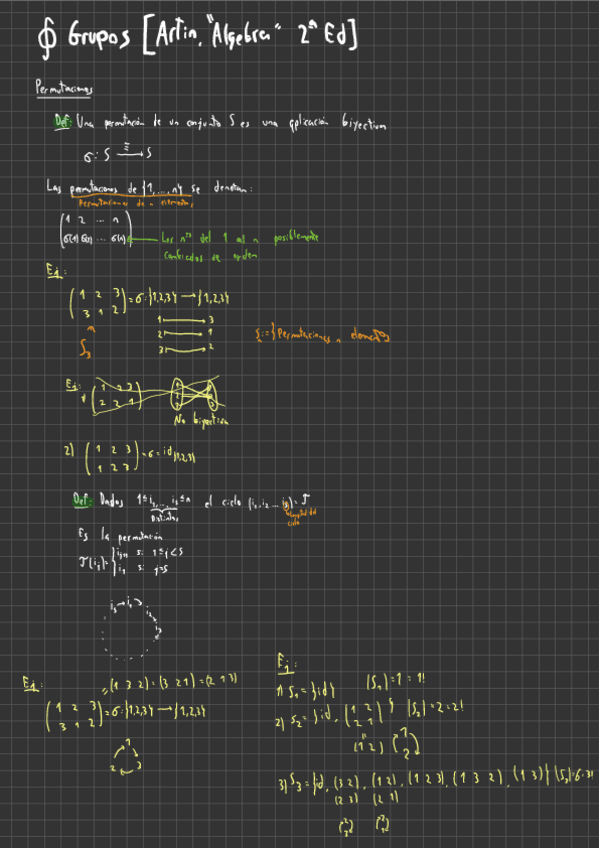 ∮ Grupos [Artin, "Algebra" 2ª Ed]
Permutaciones
Def: Una permutación de un conjunto S es una aplicación biyectiva
σ: S ⟶ S
Las permutaciones de {1,...,n} se denotan:
Permutaciones de n elementos
(1 2 ... n
σ(1) σ(2) ... σ(n)) Los nºs del 1 al n posiblemente
cambiados de orden
Ej:
(1 2 3
3 1 2) = σ: {1,2,3} ⟶ {1,2,3}
1 ⟶ 3
2 ⟶ 1
3 ⟶ 2
S₃
Sₙ := {Permutaciones n elementos}
Ej:
1 (1 2 3
2 2 1)
No biyectiva
2) (1 2 3
1 2 3) = σ = id{1,2,3}
Def: Dados 1≤i₁,...,iₛ≤n el ciclo (i₁, i₂ ... iₛ) = τ
Distintos
longitud del
ciclo
Es la permutación
τ(iⱼ) = {iⱼ₊₁ si 1≤j<s
i₁ si j=s
iₛ → i₁ i₂ i₃
Ej:
(1 3 2) = (3 2 1) = (2 1 3)
(1 2 3
3 1 2) = σ: {1,2,3} ⟶ {1,2,3}
1
2 3
Ej:
1) S₁ = {id} |S₁| = 1 = 1!
2) S₂ = {id, (1 2
2 1)} |S₂| = 2 = 2!
(1 2) 1
2
3) S₃ = {id, (3 2), (1 2), (1 2 3), (1 3 2), (1 3)} |S₃| = 6 = 3!
(2 3) (2 1)